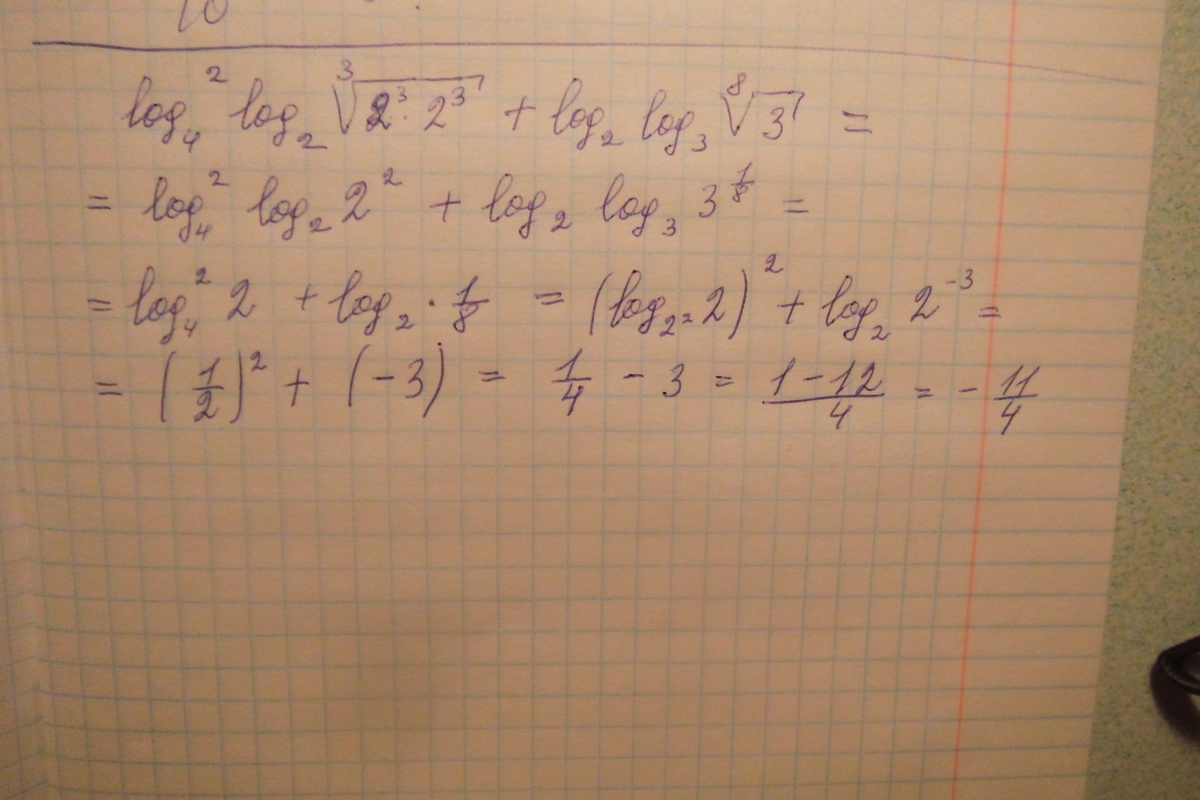 log₄² log₂ ∛(2³ · 2³) + log₂ log₃ ⁸√3 =
= log₄² log₂ 2² + log₂ log₃ 3^(1/8) =
= log₄² 2 + log₂ · 1/8 = (log_(2²) 2)² + log₂ 2⁻³ =
= (1/2)² + (-3) = 1/4 - 3 = (1-12)/4 = - 11/4